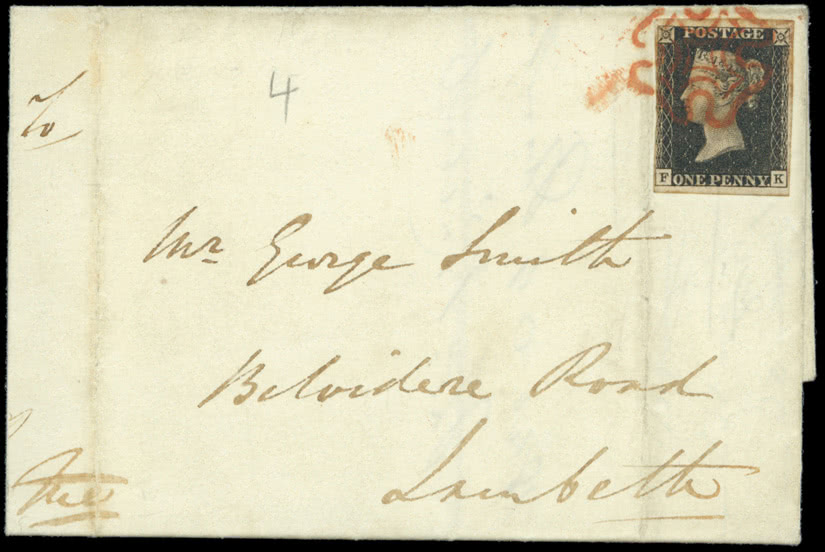 To
4
POSTAGE
F ONE PENNY K
Mr George Smith
Belvidere Road
Lambeth